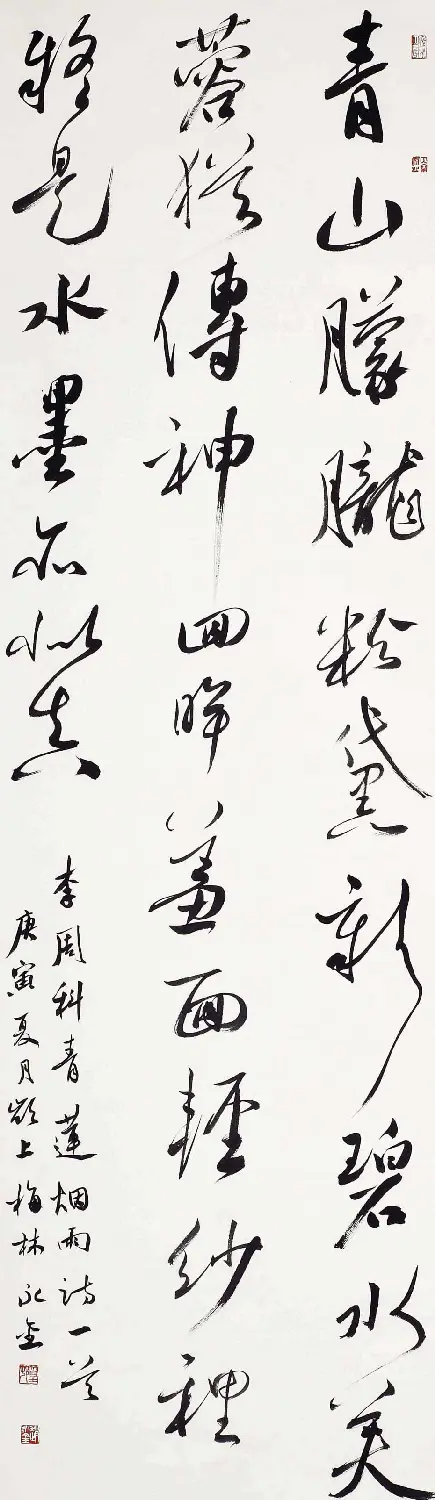 青山朦朧粉黛新碧水芙
蓉猶傳神回眸羞面輕紗裡
疑是水墨亦似真
李周科青蓮烟雨詩一首
庚寅夏月上梅林永金